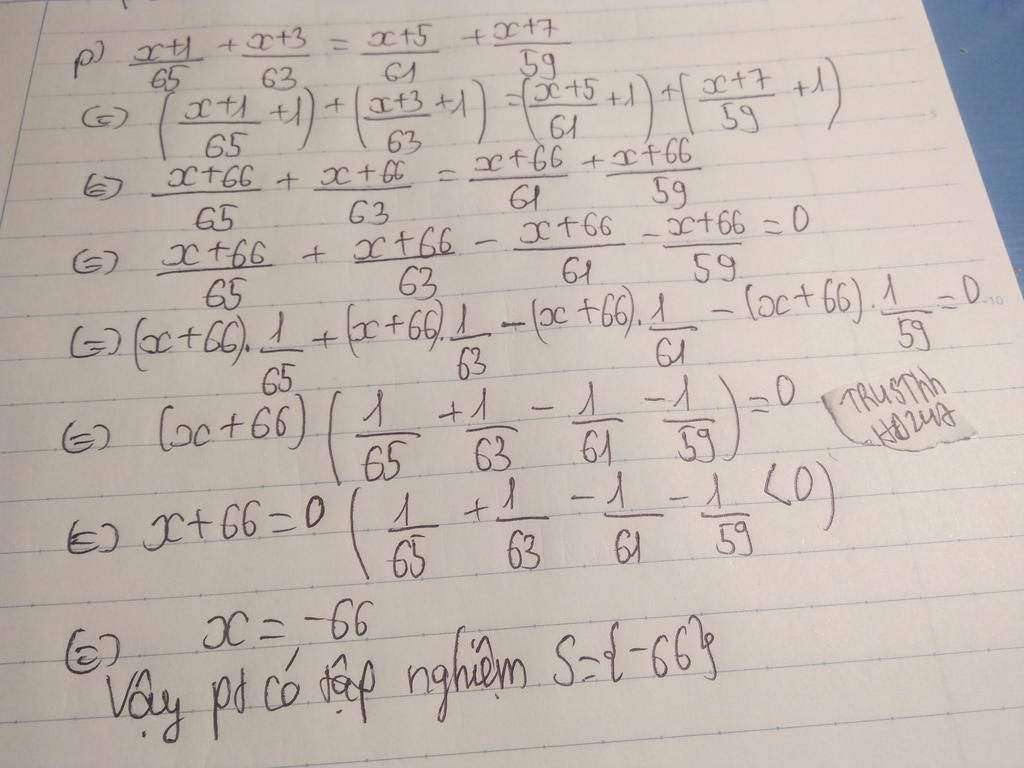 p) (x+1)/65 + (x+3)/63 = (x+5)/61 + (x+7)/59
(=) ((x+1)/65 +1) + ((x+3)/63 +1) = ((x+5)/61 +1) + ((x+7)/59 +1)
(=) (x+66)/65 + (x+66)/63 = (x+66)/61 + (x+66)/59
(=) (x+66)/65 + (x+66)/63 - (x+66)/61 - (x+66)/59 = 0
(=) (x+66).1/65 + (x+66).1/63 - (x+66).1/61 - (x+66).1/59 = 0
(=) (x+66) (1/65 + 1/63 - 1/61 - 1/59) = 0
TRUSTHh
(=) x+66=0 (1/65 + 1/63 - 1/61 - 1/59 <0)
(=) x = -66
Vậy pt có tập nghiệm S={-66}